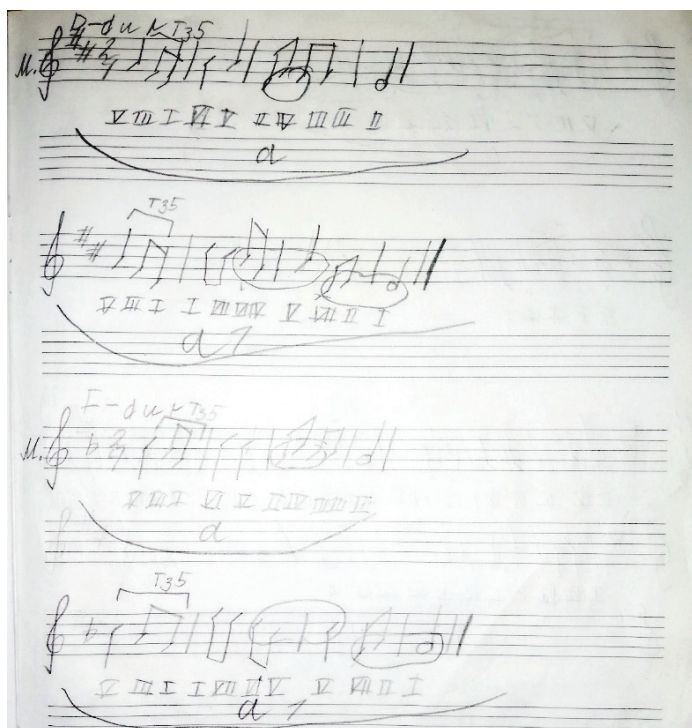 D-dur T35
м. 2 4
V III I VI V II IV III III II
a
T35
V III I I VII VI V V VII II I
a1
F-dur T35
м. 2 4
V III I VI V II IV III III II
a
T35
V III I I VII VI V V VII II I
a1